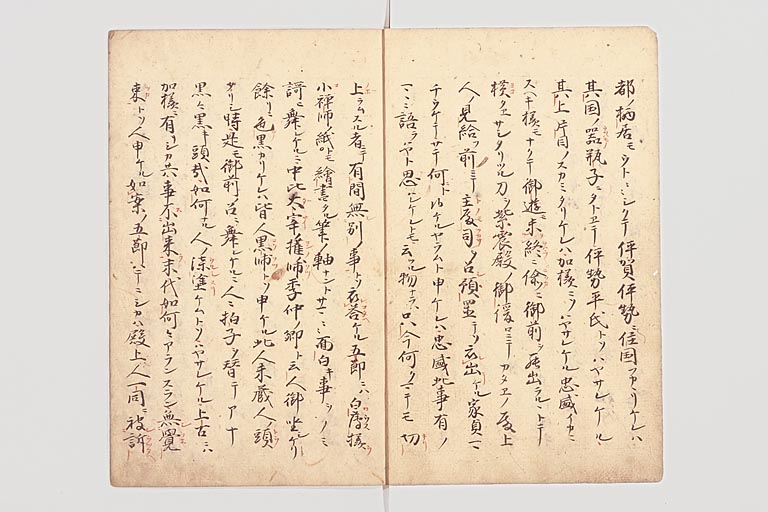 都ノ栖居モウト〻シクテ伊賀伊勢ニ住国フカリケレハ
其国ノ器瓶子ニタトヱテ伊勢平氏トソハヤサレケル
其上片目ノスカミタリケレハ加様ニソハヤサレケル忠盛イカニ
スヘキ様モナクテ御遊モ未終ニ偸ニ御前ヲ罷出ラルヽトテ
横タヱサレタリツル刀ヲ紫宸殿ノ御後ロニテカタヱノ殿上
人ノ見給フ前ニテ主殿司ヲ召預置テソ被出ケル家貞
何ト候ケルヤラムト申ケレハ忠盛此事有ノ
語ラハヤト思ハレケレトモ云フ物ナラハ只今何
上ラムスル者ニテ有間無別ノ事トソ被答ケル五節ニハ白薄様
小禅師ノ紙トモ繪書タル筆ノ軸ナントサマ〻面白キ事ヲノミ
謌ヒ舞レケルニ中比大宰権帥季仲ノ卿ト云人御坐ケリ
餘リニ色黒カリケレハ皆人黒帥トソ申ケル此人未蔵人ノ頭
タリシ時是モ御前ノ召ニ舞レケルニ人〻拍子ヲ替テアナ
黒〻黒キ頭哉如何ナル人ノ漆塗ケムトソハヤサレケル上古ニハ
加様ニ有シカ共事不出来末代如何ニアランスラン無覺
束トソ人申ケル如案ノ五節ハテニシカハ殿上人一同ニ被訴